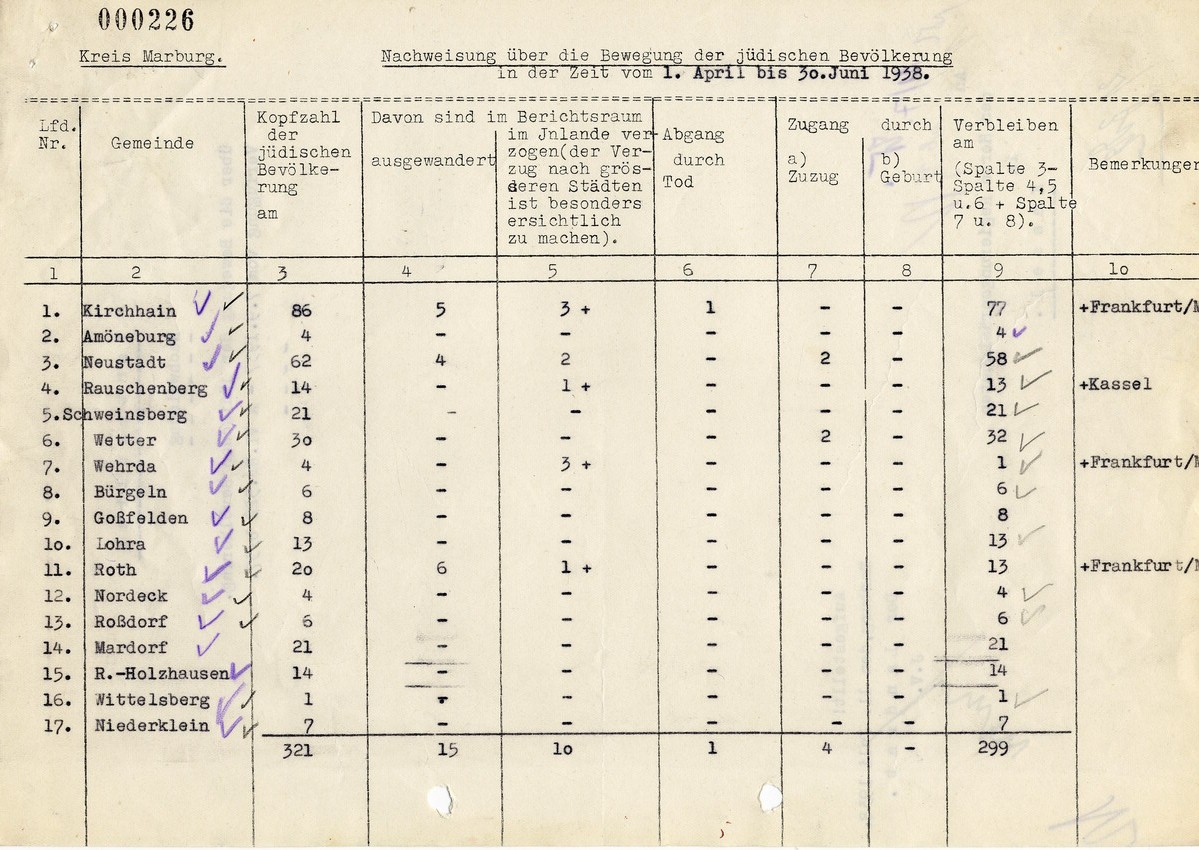 000226
Kreis Marburg.
Nachweisung über die Bewegung der jüdischen Bevölkerung
in der Zeit vom 1. April bis 3o.Juni 1938.
Lfd. Nr.
Gemeinde
Kopfzahl der jüdischen Bevölke- rung am
Davon sind im Berichtsraum
ausgewandert
im Jnlande ver- zogen(der Ver- zug nach grös- deren Städten ist besonders ersichtlich zu machen).
Abgang durch Tod
Zugang durch
a) Zuzug
b) Geburt
Verbleiben am (Spalte 3- Spalte 4,5 u.6 + Spalte 7 u. 8).
Bemerkungen
1 2 3 4 5 6 7 8 9 1o
1. Kirchhain 86 5 3 + 1 - - 77 +Frankfurt/M
2. Amöneburg 4 - - - - - 4
3. Neustadt 62 4 2 - 2 - 58
4. Rauschenberg 14 - 1 + - - - 13 +Kassel
5.Schweinsberg 21 - - - - - 21
6. Wetter 3o - - - 2 - 32
7. Wehrda 4 - 3 + - - - 1 +Frankfurt/M
8. Bürgeln 6 - - - - - 6
9. Goßfelden 8 - - - - - 8
1o. Lohra 13 - - - - - 13
11. Roth 2o 6 1 + - - - 13 +Frankfurt/M
12. Nordeck 4 - - - - - 4
13. Roßdorf 6 - - - - - 6
14. Mardorf 21 - - - - - 21
15. R.-Holzhausen 14 - - - - - 14
16. Wittelsberg 1 - - - - - 1
17. Niederklein 7 - - - - - 7
321 15 1o 1 4 - 299